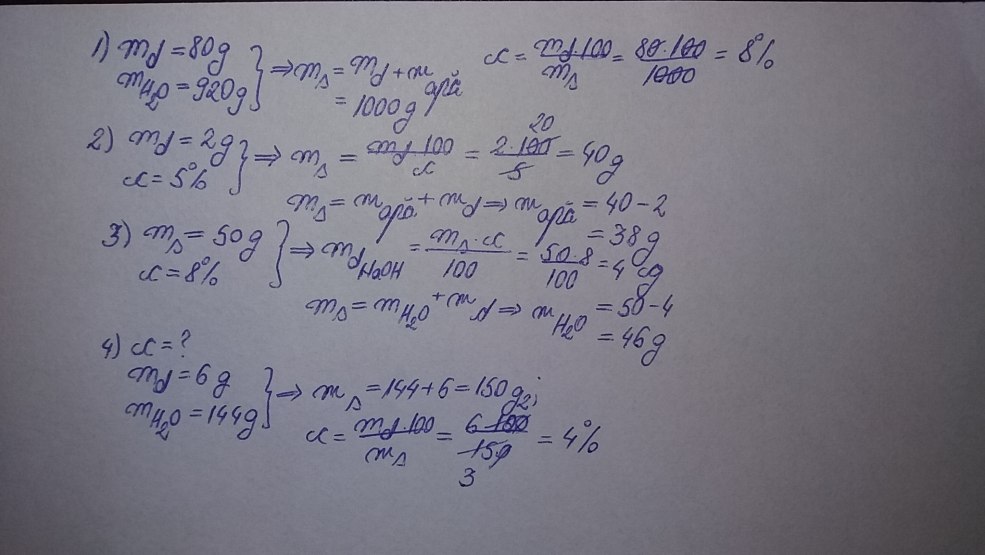 1) md = 80g
mH₂O = 920g } ⇒ ms = md + mapă = 1000g
c = md·100/ms = 80·100/1000 = 8%
2) md = 2g
c = 5% } ⇒ ms = md·100/c = 2·100/5 = 40g
20
ms = mapă + md ⇒ mapă = 40 - 2
= 38g
3) ms = 50g
c = 8% } ⇒ mdNaOH = ms·c/100 = 50·8/100 = 4g
ms = mH₂O + md ⇒ mH₂O = 50 - 4
= 46g
4) c = ?
md = 6g
mH₂O = 144g } ⇒ ms = 144 + 6 = 150g;
c = md·100/ms = 6·100/150 = 4%
2
3